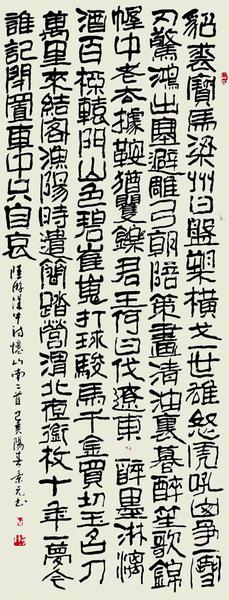 貂裘寶馬梁州日盤槊橫戈一世雄怒虎吼山爭雪
刃驚鴻出塞避雕弓朝陪策畫清油裏暮醉笙歌錦
幄中老去據鞍猶矍鑠君王何日伐遼東醉墨淋漓
酒百桮轅門山色碧崔嵬打球駿馬千金買切玉名刀
萬里來結客漁陽時遣簡踏營渭北夜銜枚十年一夢今
誰記閉置車中只自哀 陸游漢中詩憶山南二首 己亥陽春景元書